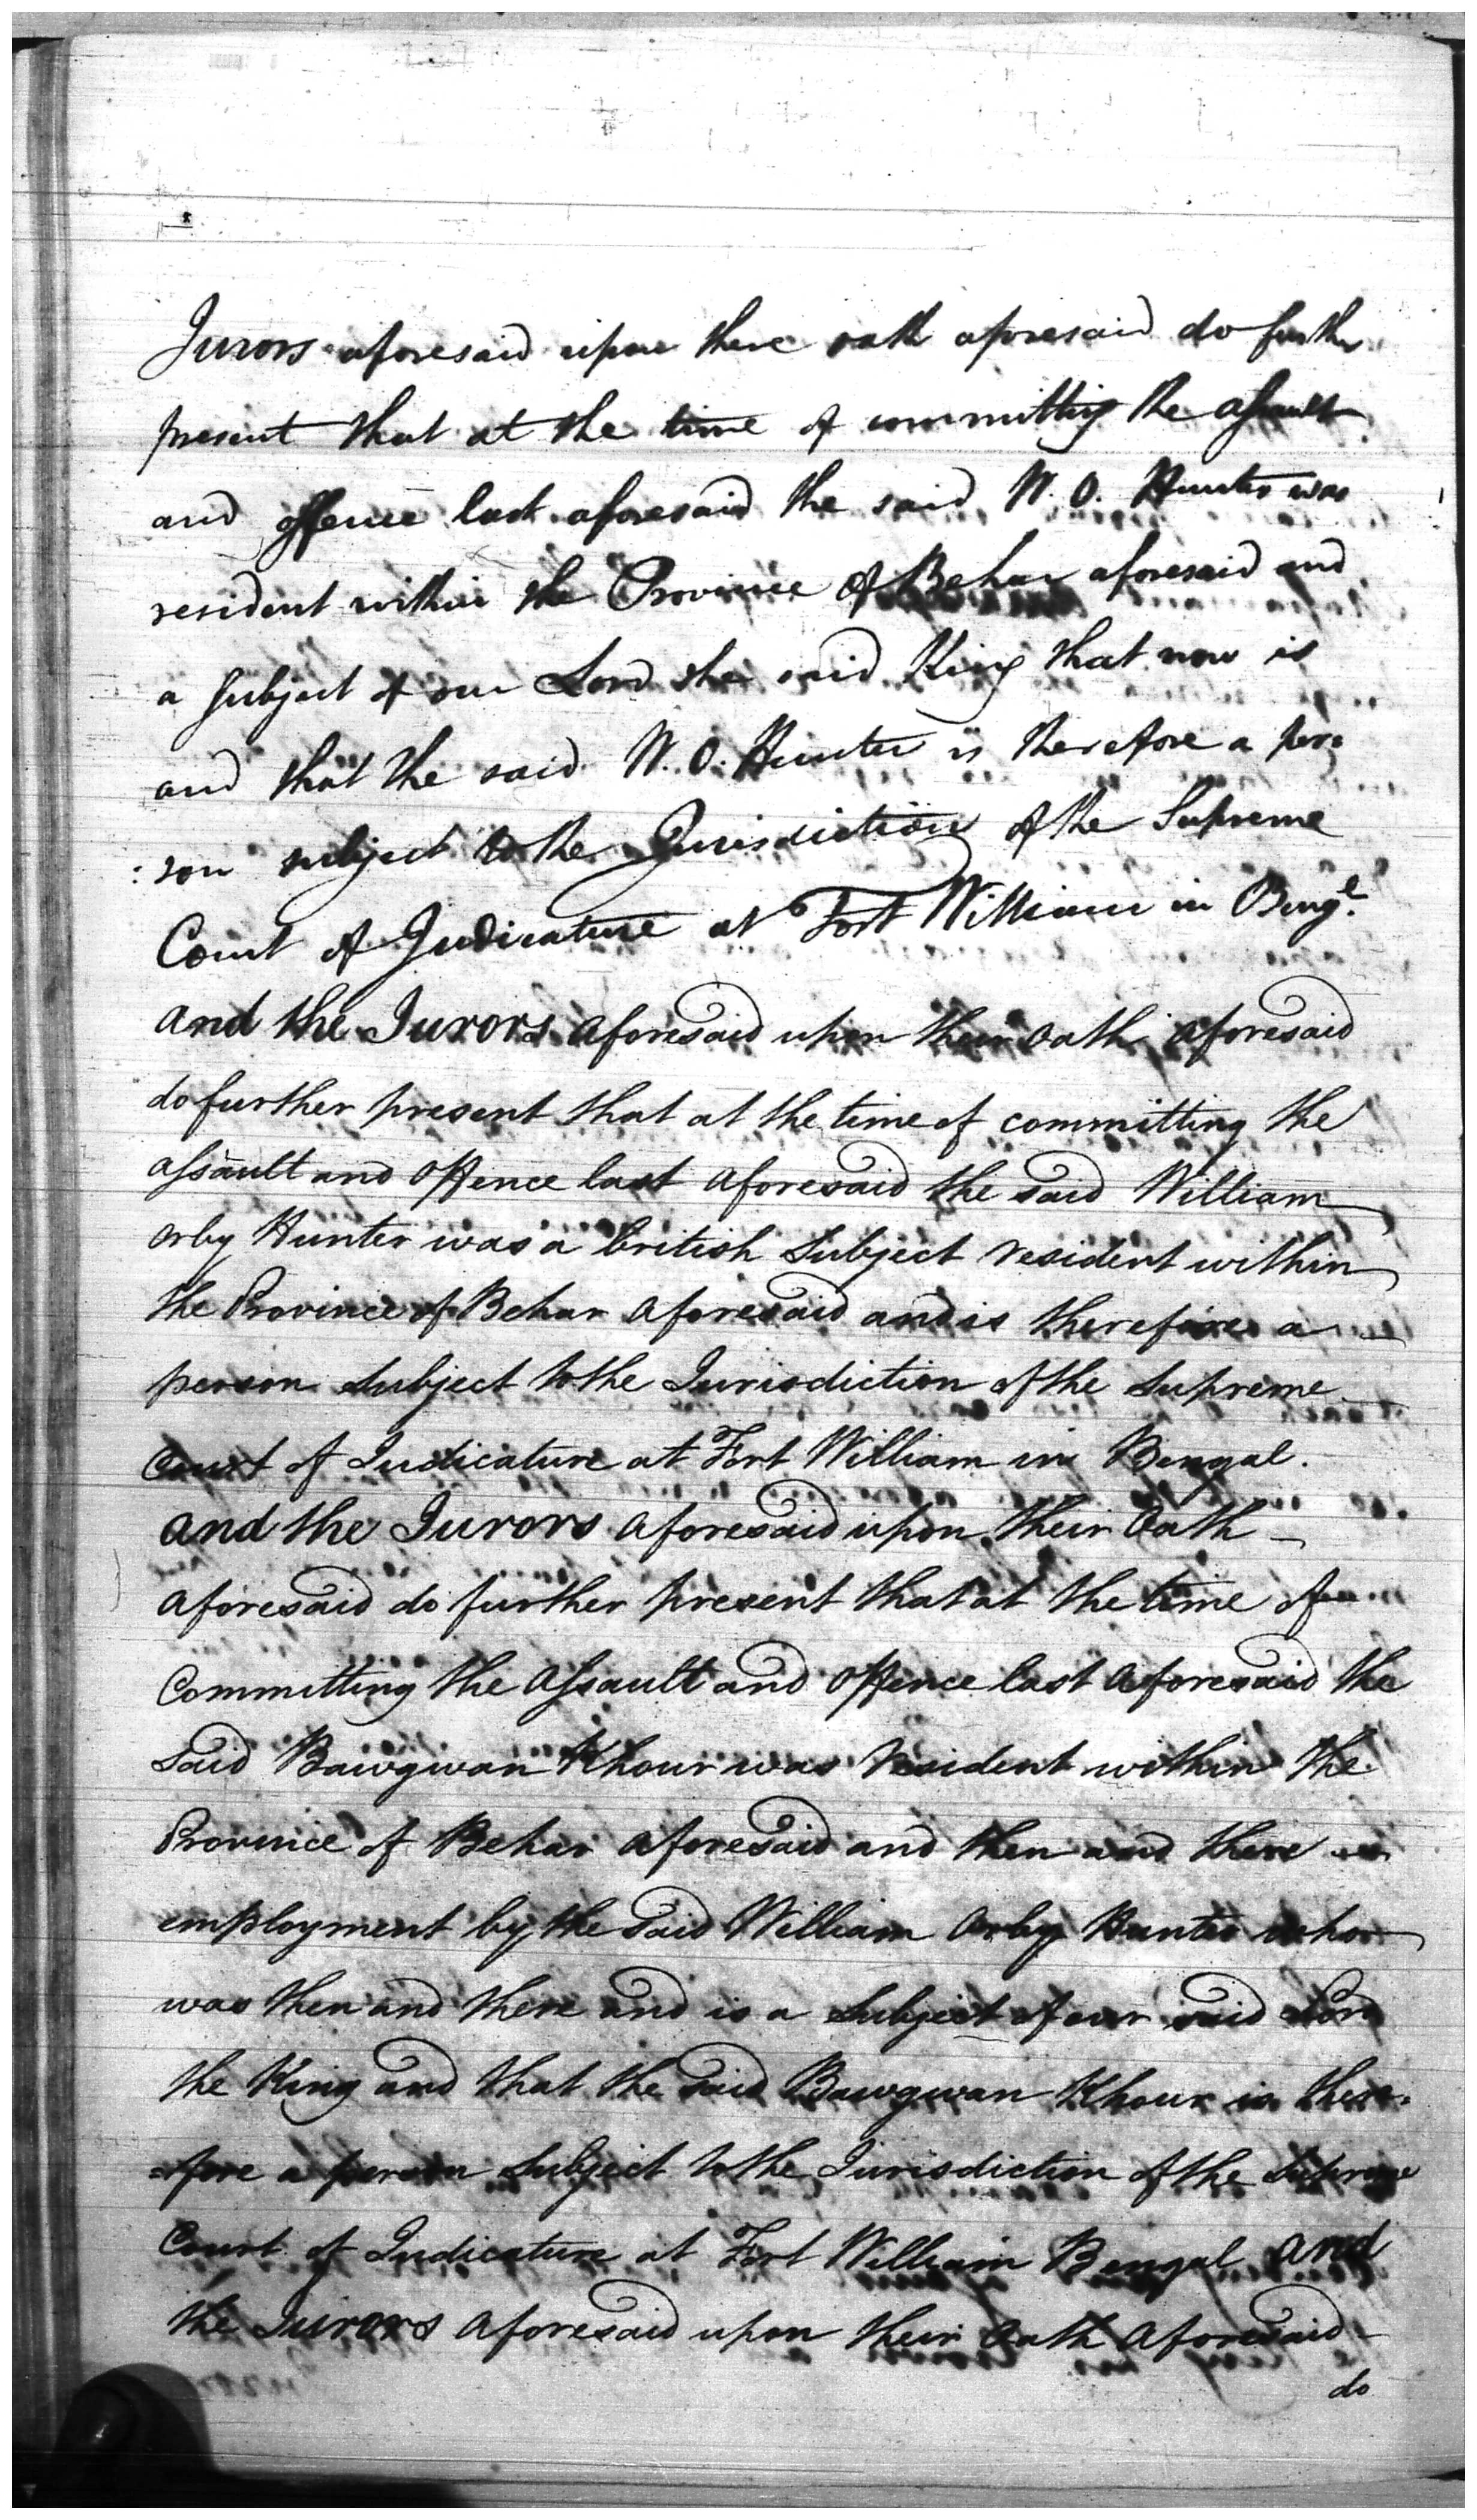 Jurors aforesaid upon there oath aforesaid do further
present that at the time of committing the assault
and offence last aforesaid the said W. O. Hunter was
resident within the Province of Behar aforesaid and
a subject of our Lord the said King that now is
and that the said W. O. Hunter is therefore a per=
:son subject to the Jurisdiction of the Supreme
Court of Judicature at Fort William in Beng.l
and the Jurors aforesaid upon their oath aforesaid
do further present that at the time of committing the
assault and Offence last aforesaid the said William
orby Hunter was a british Subject resident within
the Province of Behar aforesaid and is therefore a
person Subject to the Jurisdiction of the Supreme
Court of Judicature at Fort William in Bengal.
and the Jurors aforesaid upon their Oath
aforesaid do further present that at the time of
Committing the Assault and Offence last aforesaid the
Said Bawgwan Khour was resident within the
Province of Behar aforesaid and then and there
employment by the Said William Orby Hunter who
was then and there and is a Subject of our said Lord
the King and that the Said Bawgwan Khour is there=
=fore a person Subject to the Jurisdiction of the Supreme
Court of Judicature at Fort William Bengal and
the Jurors aforesaid upon their Oath aforesaid
do